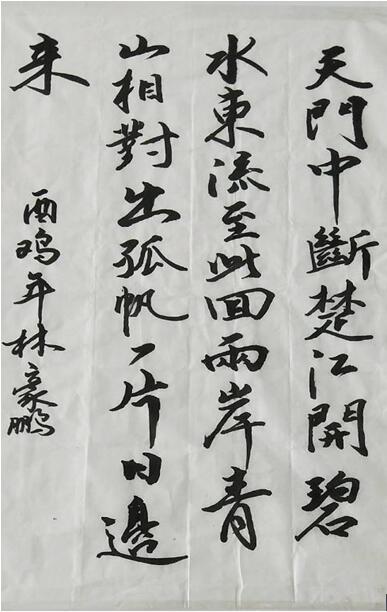 天門中斷楚江開碧
水東流至此回兩岸青
山相對出孤帆一片日邊
来
酉鸡年林豪鹏